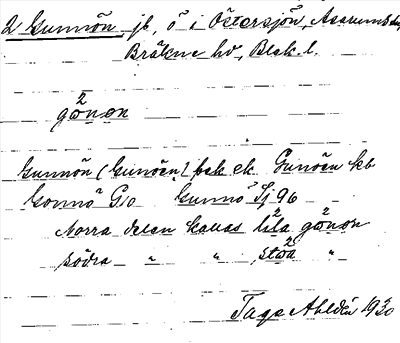 2 Gunnön jb, ö i Östersjön, Asarums sn,
Bräkne hd, Blek. l.
gönon
Gunnön (Gunöen) bek ek. Gunöen kb
Gonnö G10 Gunnö Sj 96
Norra delen kallas lila gönon
södra " " stoa "
Tage Ahldén 1930